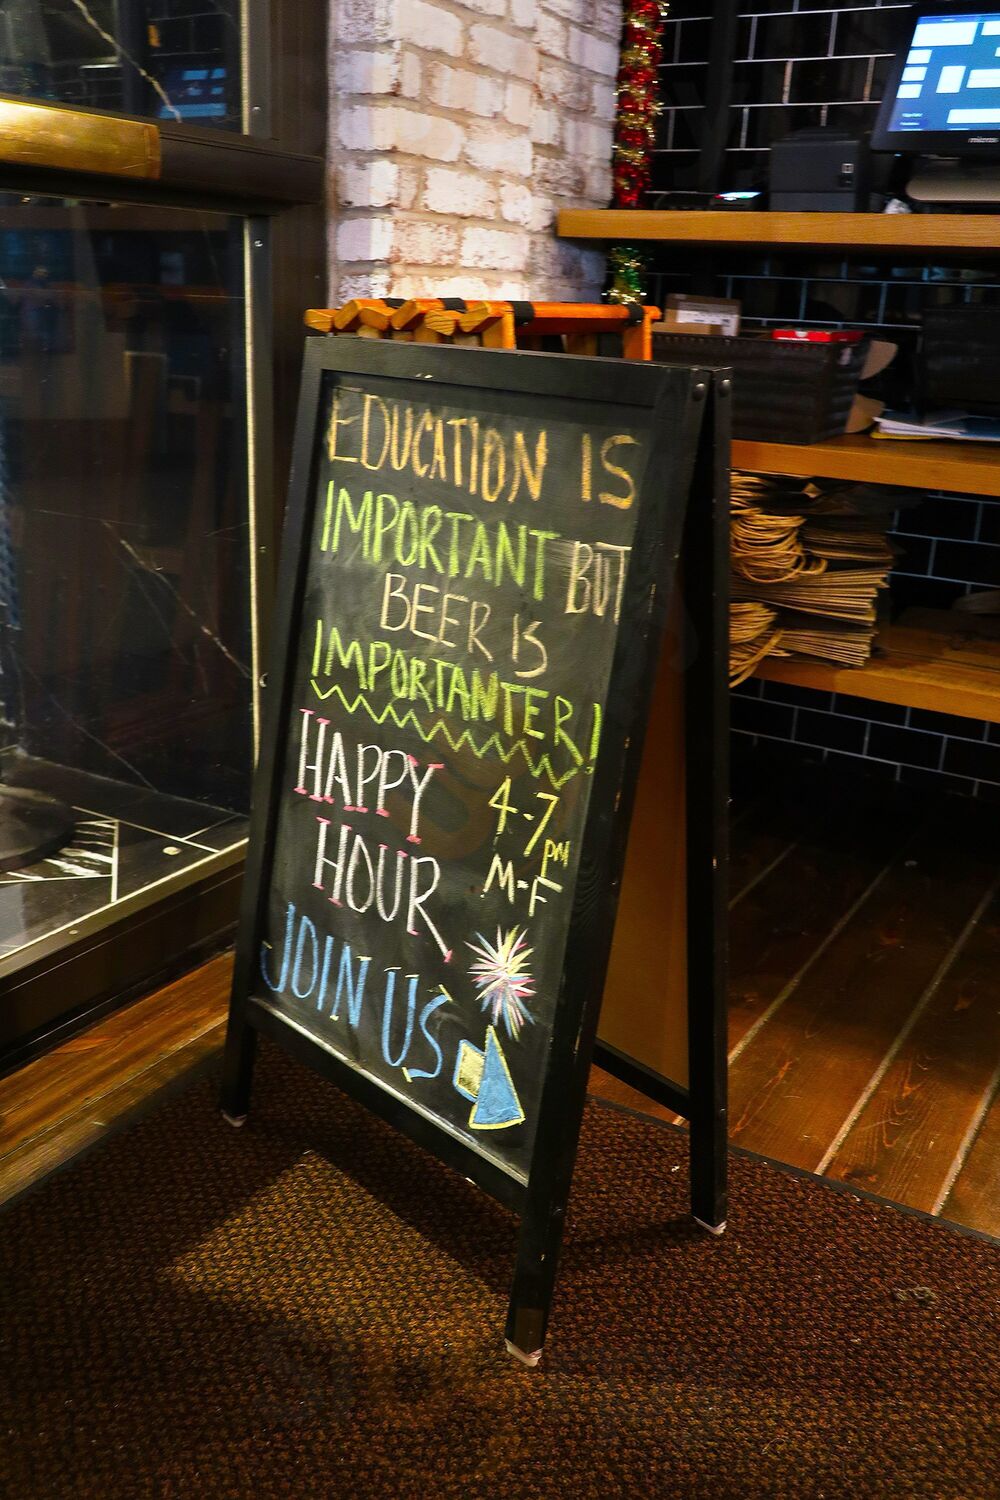 EDUCATION IS
IMPORTANT BUT
BEER IS
IMPORTANTER!
HAPPY
HOUR
4-7
PM
M-F
JOIN US
micros